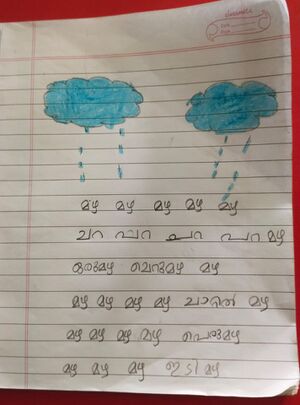 മഴ മഴ മഴ മഴ മഴ
ചറ പറ ചറ പറ മഴ
ഒരുമഴ ചെറുമഴ മഴ
മഴ മഴ മഴ മഴ ചാറൽ മഴ
മഴ മഴ മഴ മഴ പെരുമഴ
മഴ മഴ മഴ ഇടി മഴ